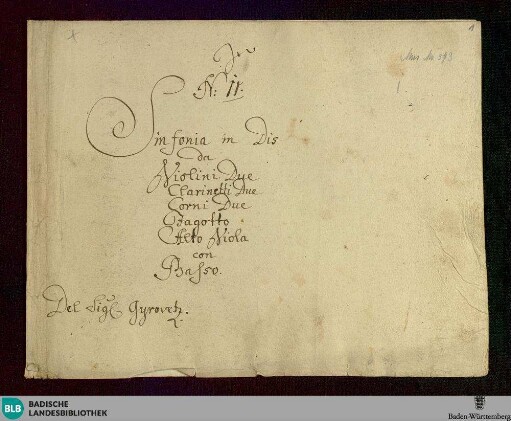 1
N: 11.
Sinfonia in Dis
da
Violini Due
Clarinetti Due
Corni Due
Fagotto
Alto Viola
con
Basso.
Del Sigl Gyrovetz.
BLB BADISCHE
LANDESBIBLIOTHEK
Baden-Württemberg